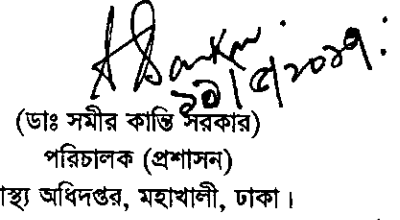 (ডাঃ সমীর কান্তি সরকার)
পরিচালক (প্রশাসন)
াস্থ্য অধিদপ্তর, মহাখালী, ঢাকা।